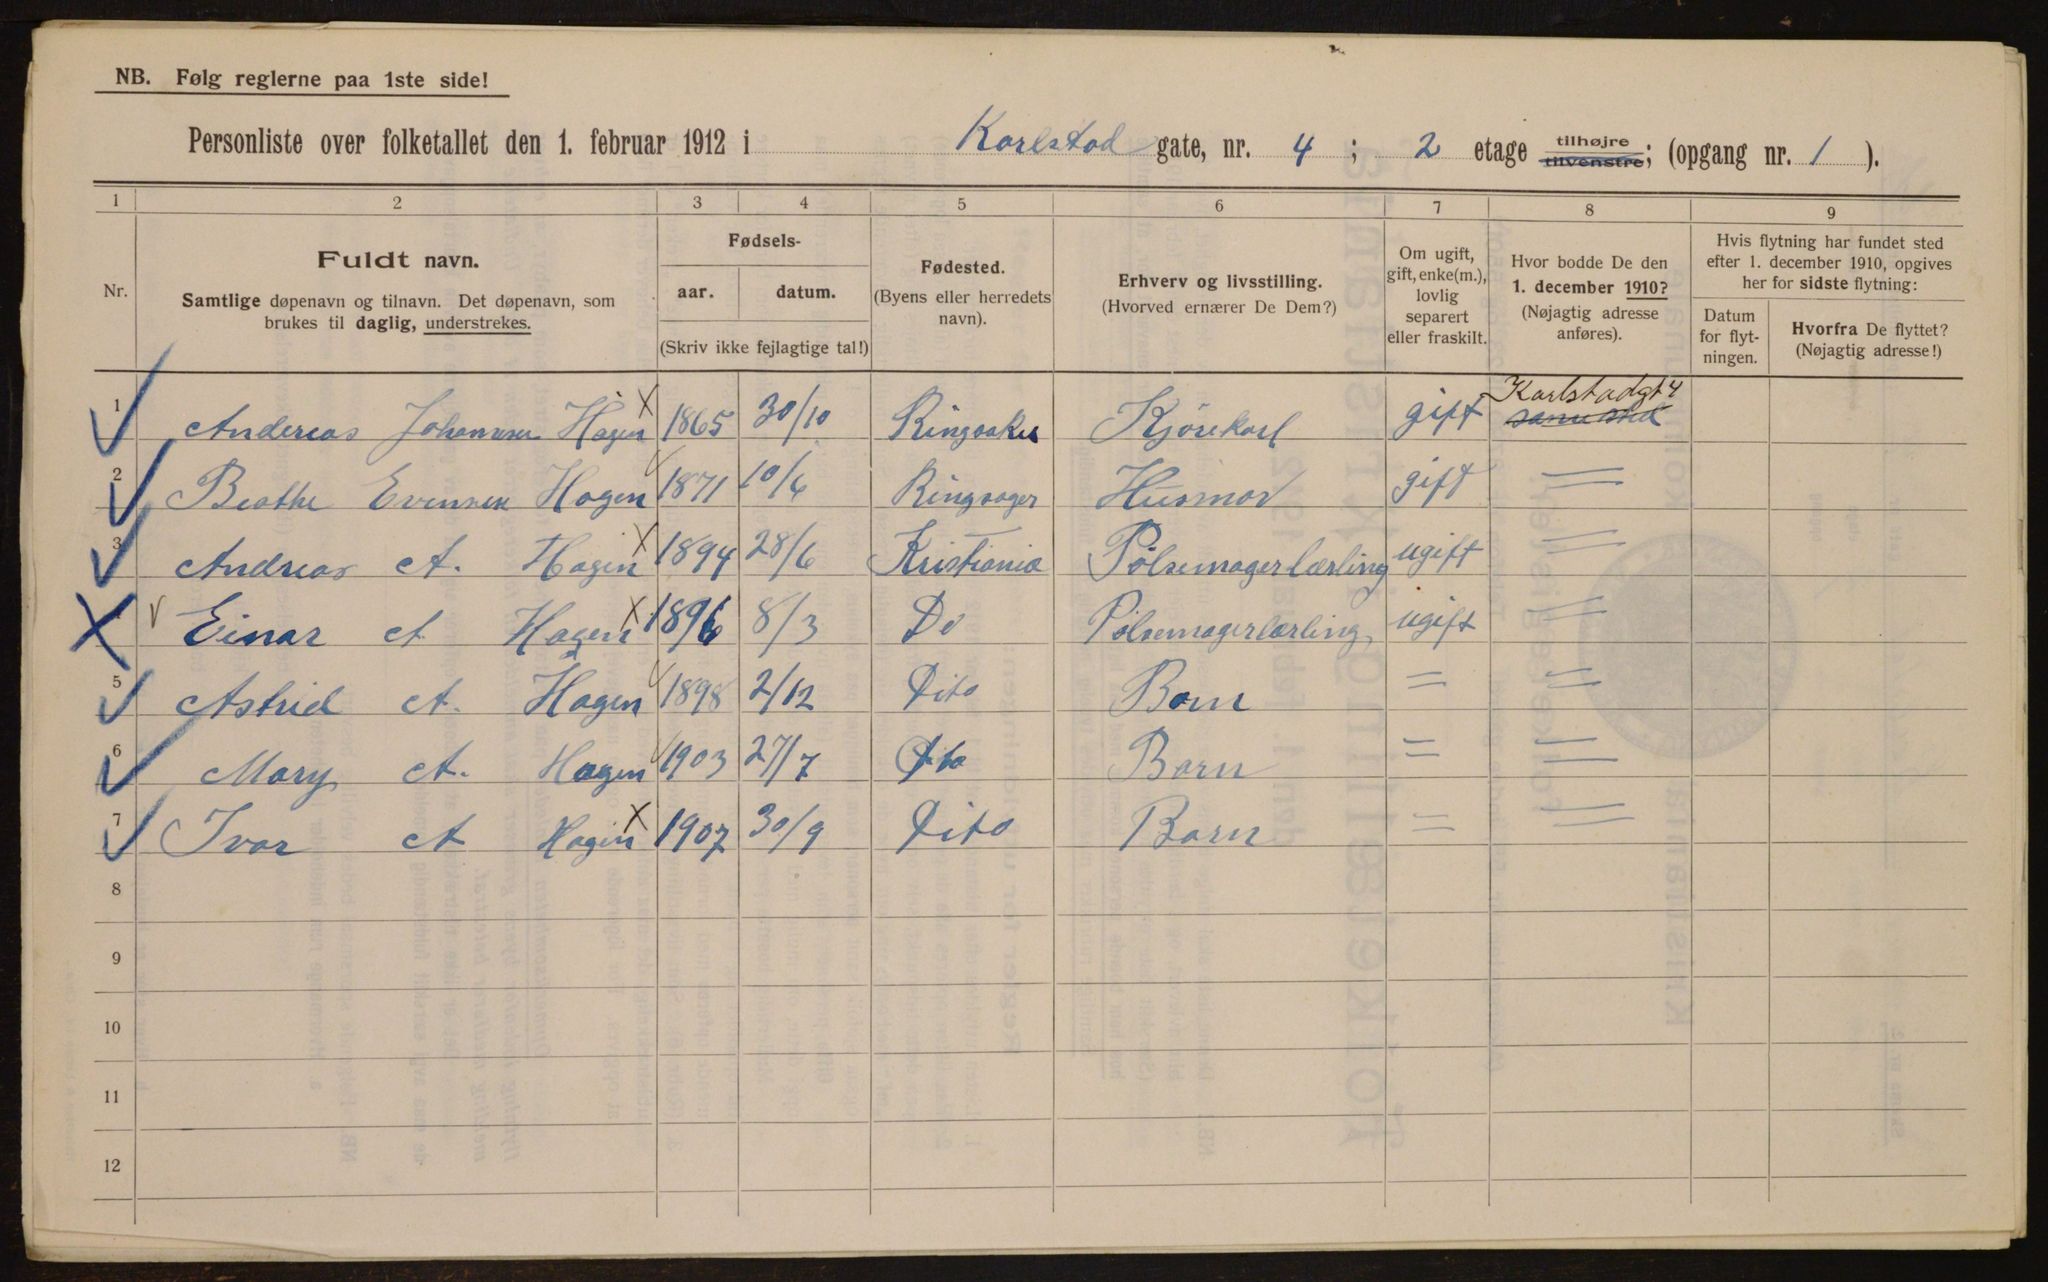 NB. Følg reglerne paa 1ste side!
Personliste over folketallet den 1. februar 1912 i Karlstad gate, nr. 4 ; 2 etage tilhøjre tilvenstre; (opgang nr. 1 ).
1 2 3 4 5 6 7 8 9
Nr.
Fuldt navn.
Samtlige døpenavn og tilnavn. Det døpenavn, som
brukes til daglig, understrekes.
Fødsels-
aar. datum.
(Skriv ikke fejlagtige tal!)
Fødested.
(Byens eller herredets
navn).
Erhverv og livsstilling.
(Hvorved ernærer De Dem?)
Om ugift,
gift, enke(m.),
lovlig
separert
eller fraskilt.
Hvor bodde De den
1. december 1910?
(Nøjagtig adresse
anføres).
Hvis flytning har fundet sted
efter 1. december 1910, opgives
her for sidste flytning:
Datum
for flyt-
ningen.
Hvorfra De flyttet?
(Nøjagtig adresse!)
Karlstadgt 4
1 Andreas Johannsen Hagen X 1865 30/10 Ringsaker Kjørekarl gift samested
2 Beathe Evensen Hagen 1871 10/6 Ringsager Husmor gift =
3 Andreas A. Hagen X 1894 28/6 Kristiania Pølsemagerlærling ugift =
4 Einar A Hagen X 1896 8/3 Do Pølsemagerlærling ugift =
5 Astrid A. Hagen 1898 2/12 Dito Barn = =
6 Mary A. Hagen 1903 27/7 Dito Barn = =
7 Ivar A Hagen X 1907 30/9 Dito Barn = =
8
9
10
11
12